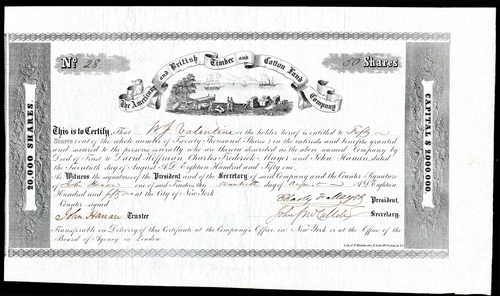 No 28
50 Shares
The American and British Timber and Cotton Land Company
20,000 SHARES.
CAPITAL $ 2,000,000
This is to Certify, That W. J. Valentine or the holder hereof is entitled to Fifty
Shares (out of the whole number of Twenty Thousand Shares) in the interests and benefits granted
and secured to the persons severally who are therein described as the above named Company by
Deed of Trust to David Hoffman Charles Frederick Mayer and John Hanan, dated
the Seventeenth day of August A.D. Eighteen Hundred and Fifty.
As Witness the signatures of the President and of the Secretary of said Company and the Counter Signature
of John Hanan one of said Trustees this day of August A.D. Eighteen
Hundred and fifty at the City of New York
Counter signed President.
John Hanan Trustee Secretary.
Transferable on Delivery of this Certificate at the Company's Office in New York or at the Office of the
Board of Agency in London